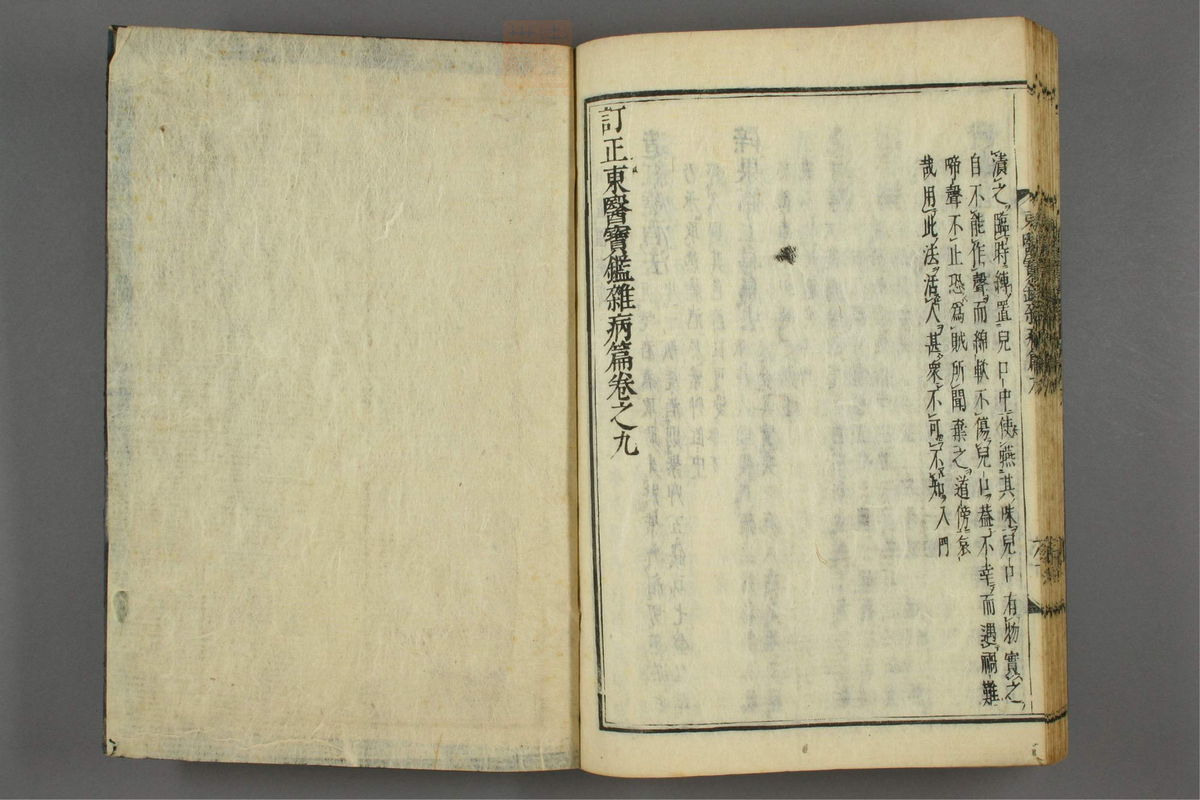 漬之臨時縛置兒口中使嚥其味兒口有物實之
自不能作聲而綿軟不傷兒口蓋不幸而遇禍難
啼聲不止恐爲賊所聞棄之道傍哀
哉用此法活人甚衆不可不知入門
訂正東醫寶鑑雜病篇卷之九